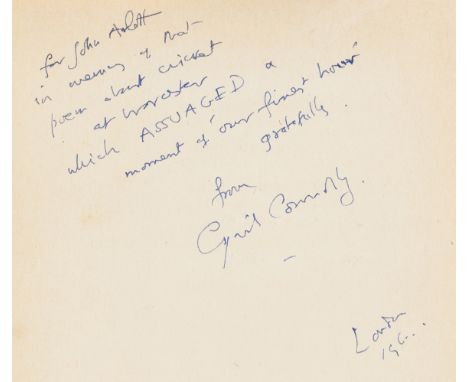 for John Arlott
in memory of that
poem about cricket
at Worcester
which ASSUAGED a
moment of 'our finest hour'
gratefully.
from
Cyril Connolly.
London
196...